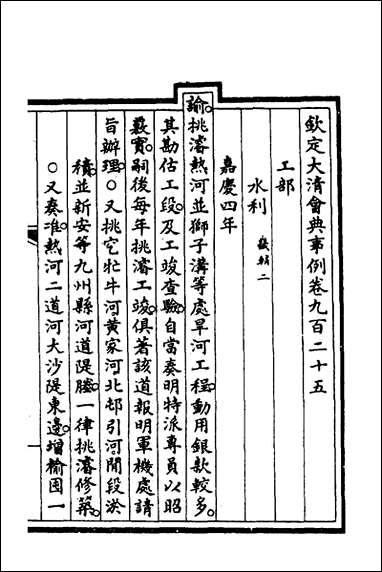 欽定大清會典事例卷九百二十五
工部
水利 畿輔二
嘉慶四年
諭。挑濬熱河並獅子溝等處旱河工程。動用銀款較多。
其勘估工段。及工竣查驗。自當奏明特派專員。以昭
覈實。嗣後每年挑濬工竣。俱著該道報明軍機處請
旨辦理。○又挑挖牤牛河黃家河北邨引河閒段淤
積。並新安等九州縣河道隄塍。一律挑濬修築。
○又奏准。熱河二道河大沙隄東邊。增榆囤一